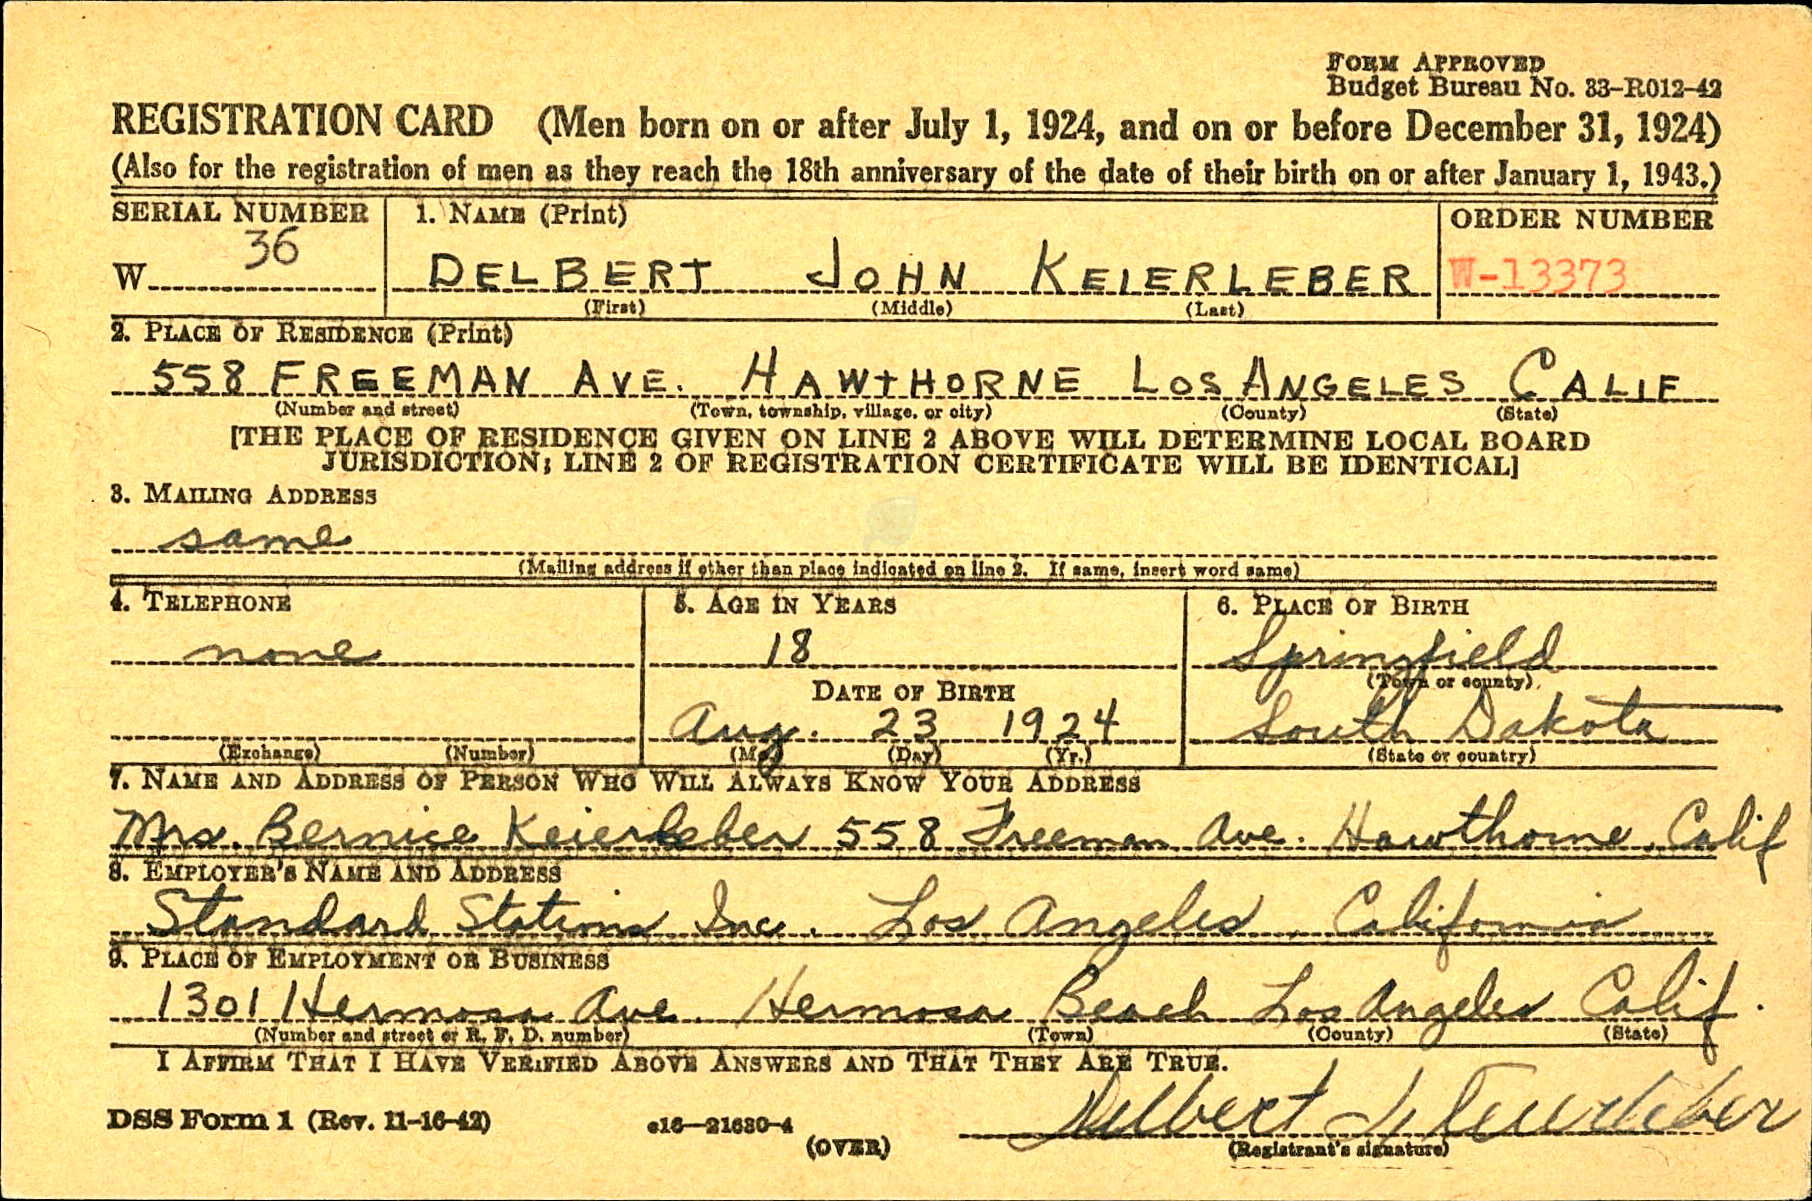 FORM APPROVED
Budget Bureau No. 33-R012-42
REGISTRATION CARD (Men born on or after July 1, 1924, and on or before December 31, 1924)
(Also for the registration of men as they reach the 18th anniversary of the date of their birth on or after January 1, 1943.)
SERIAL NUMBER 1. NAME (Print) ORDER NUMBER
W 36 DELBERT JOHN KEIERLEBER W-13373
(First) (Middle) (Last)
2. PLACE OF RESIDENCE (Print)
558 FREEMAN AVE. HAWTHORNE LOS ANGELES CALIF
(Number and street) (Town, township, village, or city) (County) (State)
[THE PLACE OF RESIDENCE GIVEN ON LINE 2 ABOVE WILL DETERMINE LOCAL BOARD
JURISDICTION; LINE 2 OF REGISTRATION CERTIFICATE WILL BE IDENTICAL]
3. MAILING ADDRESS
same
(Mailing address if other than place indicated on line 2. If same, insert word same)
4. TELEPHONE 5. AGE IN YEARS 6. PLACE OF BIRTH
none 18 Springfield
(Town or county)
DATE OF BIRTH
Aug. 23 1924 South Dakota
(Exchange) (Number) (Mo.) (Day) (Yr.) (State or country)
7. NAME AND ADDRESS OF PERSON WHO WILL ALWAYS KNOW YOUR ADDRESS
Mrs. Bernice Keierleber 558 Freeman Ave. Hawthorne, Calif
8. EMPLOYER'S NAME AND ADDRESS
Standard Stations Inc. Los Angeles, California
9. PLACE OF EMPLOYMENT OR BUSINESS
1301 Hermosa Ave. Hermosa Beach Los Angeles Calif.
(Number and street or R. F. D. number) (Town) (County) (State)
I AFFIRM THAT I HAVE VERIFIED ABOVE ANSWERS AND THAT THEY ARE TRUE.
Delbert J. Keierleber
DSS Form 1 (Rev. 11-16-42) c16-21630-4
(OVER) (Registrant's signature)